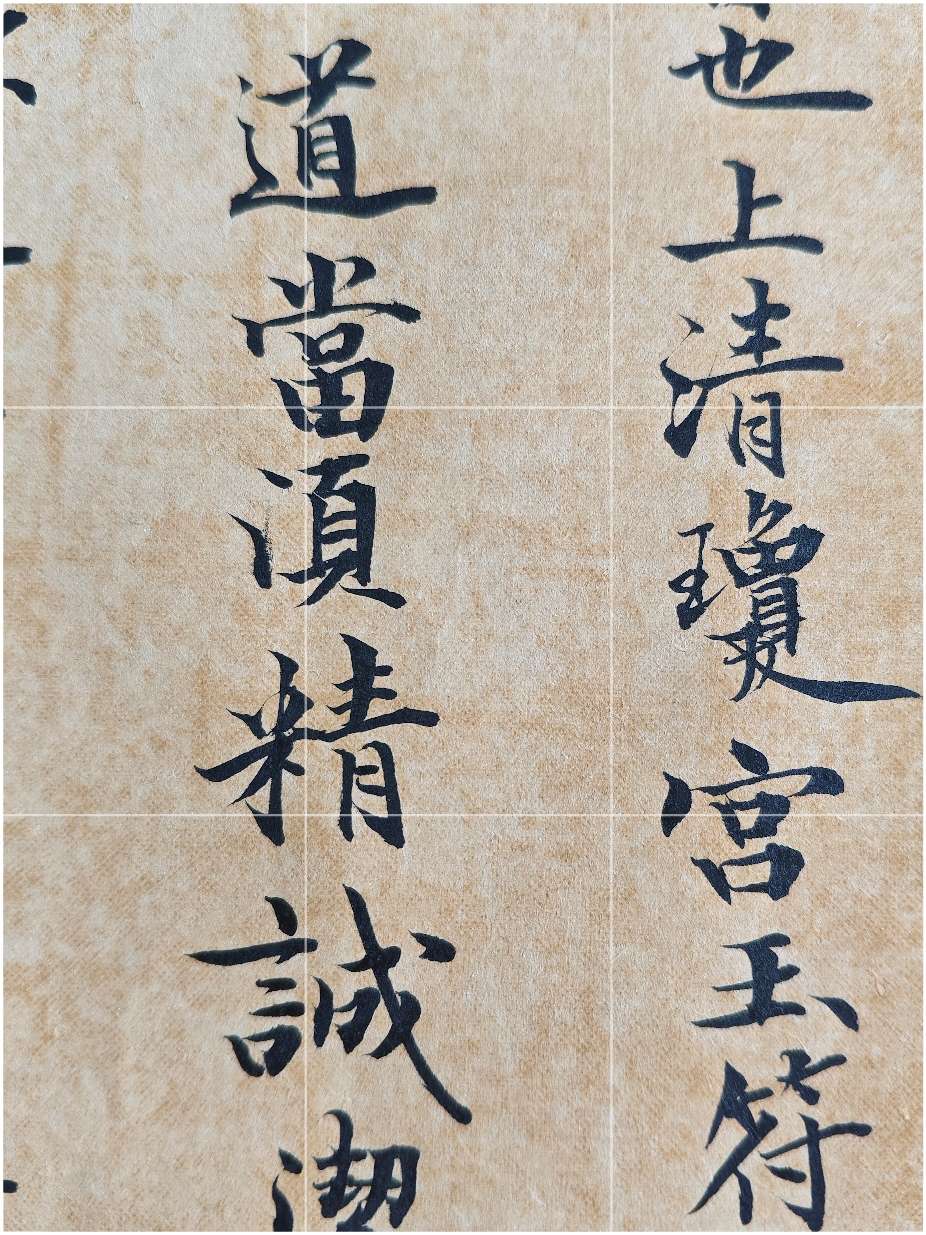 也上清瓊宮玉符
道當須精誠潔